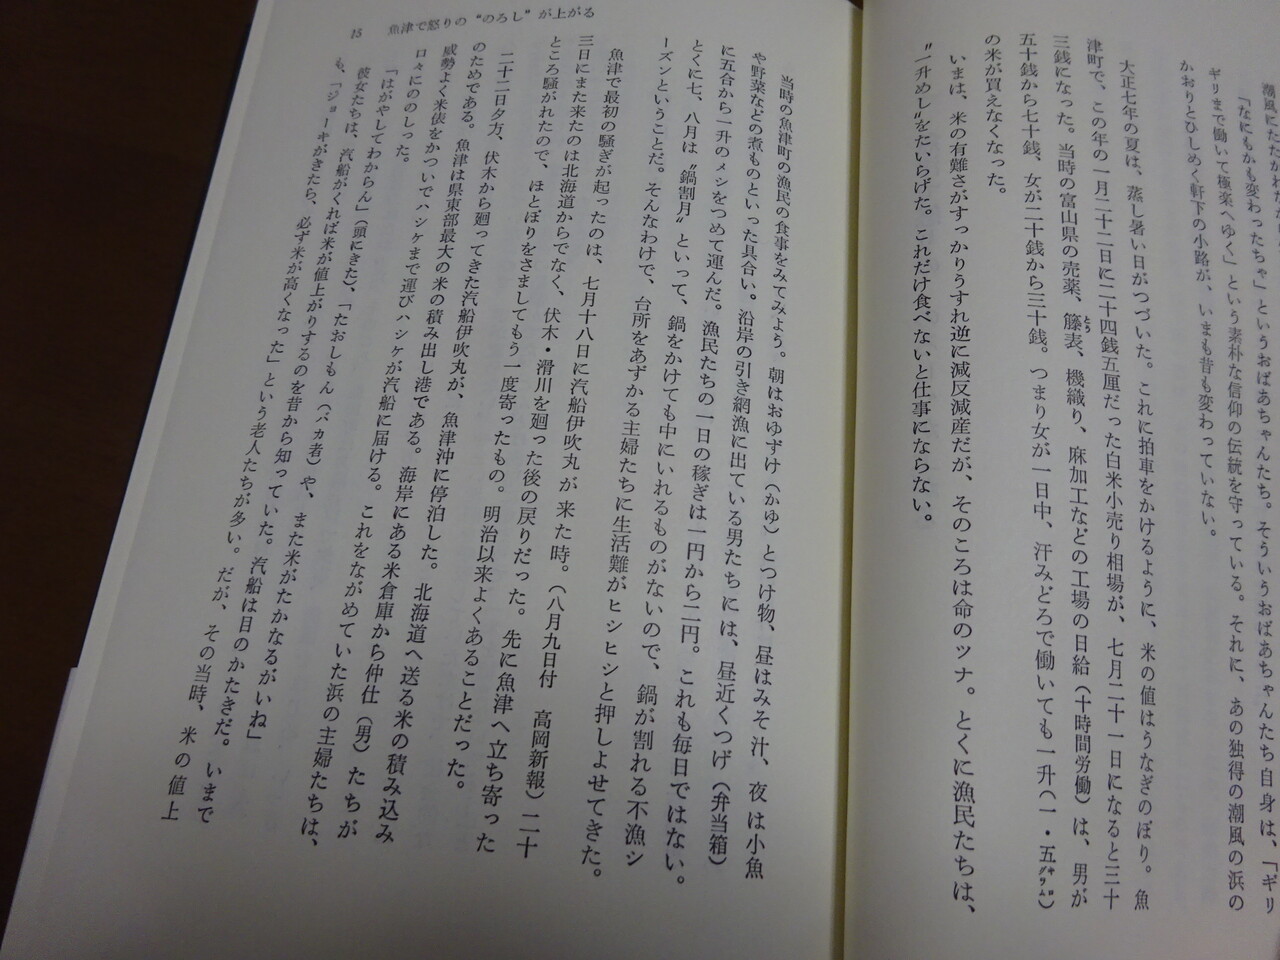 潮風にたたかれた
「なにもかも変わったちゃ」というおばあちゃんたち。そういうおばあちゃんたち自身は、「ギリ
ギリまで働いて極楽へゆく」という素朴な信仰の伝統を守っている。それに、あの独得の潮風の浜の
かおりとひしめく軒下の小路が、いまも昔も変わっていない。
大正七年の夏は、蒸し暑い日がつづいた。これに拍車をかけるように、米の値はうなぎのぼり。魚
津町で、この年の一月二十二日に二十四銭五厘だった白米小売り相場が、七月二十一日になると三十
三銭になった。当時の富山県の売薬、籐表、機織り、麻加工などの工場の日給（十時間労働）は、男が
五十銭から七十銭、女が二十銭から三十銭。つまり女が一日中、汗みどろで働いても一升（一・五キログラム）
の米が買えなくなった。
いまは、米の有難さがすっかりうすれ逆に減反減産だが、そのころは命のツナ。とくに漁民たちは、
〝一升めし〟をたいらげた。これだけ食べないと仕事にならない。
15 魚津で怒りの〝のろし〟が上がる
当時の魚津町の漁民の食事をみてみよう。朝はおゆずけ（かゆ）とつけ物、昼はみそ汁、夜は小魚
や野菜などの煮ものといった具合い。沿岸の引き網漁に出ている男たちには、昼近くつげ（弁当箱）
に五合から一升のメシをつめて運んだ。漁民たちの一日の稼ぎは一円から二円。これも毎日ではない。
とくに七、八月は〝鍋割月〟といって、鍋をかけても中にいれるものがないので、鍋が割れる不漁シ
ーズンということだ。そんなわけで、台所をあずかる主婦たちに生活難がヒシヒシと押しよせてきた。
魚津で最初の騒ぎが起ったのは、七月十八日に汽船伊吹丸が来た時。（八月九日付　高岡新報）二十
三日にまた来たのは北海道からでなく、伏木・滑川を廻った後の戻りだった。先に魚津へ立ち寄った
ところ騒がれたので、ほとぼりをさましてもう一度寄ったもの。明治以来よくあることだった。
二十二日夕方、伏木から廻ってきた汽船伊吹丸が、魚津沖に停泊した。北海道へ送る米の積み込み
のためである。魚津は県東部最大の米の積み出し港である。海岸にある米倉庫から仲仕（男）たちが
威勢よく米俵をかついでハシケまで運びハシケが汽船に届ける。これをながめていた浜の主婦たちは、
口々にののしった。
「はがやしてわからん」（頭にきた）、「たおしもん（バカ者）や、また米がたかなるがいね」
彼女たちは、汽船がくれば米が値上がりするのを昔から知っていた。汽船は目のかたきだ。いまで
も、「ジョーキがきたら、必ず米が高くなった」という老人たちが多い。だが、その当時、米の値上